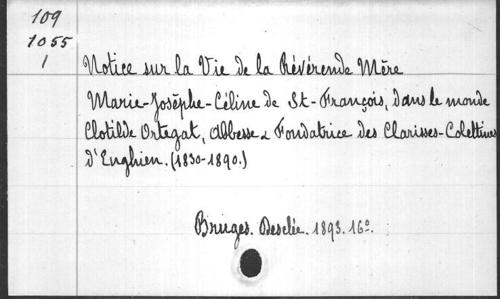 109
1055
1
Notice sur la Vie de la Révérende Mère
Marie-Josèphe-Céline de St-François, dans le monde
Clotilde Ortegat, Abbesse & Fondatrice des Clarisses-Colettines
d'Enghien. (1830-1890.)
Bruges. Desclée. 1893. 16°.